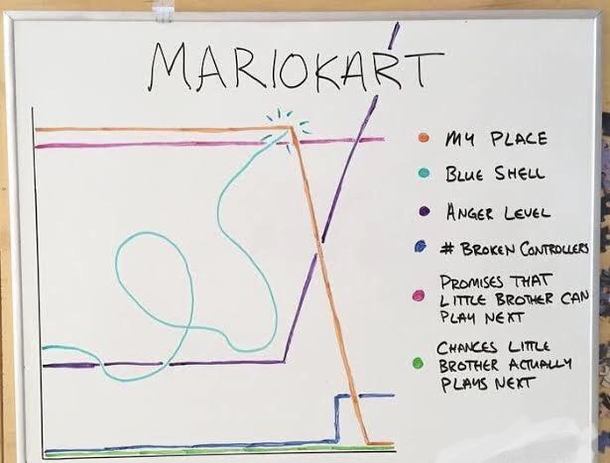 MARIOKART
MY PLACE
BLUE SHELL
ANGER LEVEL
# BROKEN CONTROLLERS
PROMISES THAT
LITTLE BROTHER CAN
PLAY NEXT
CHANCES LITTLE
BROTHER ACTUALLY
PLAYS NEXT